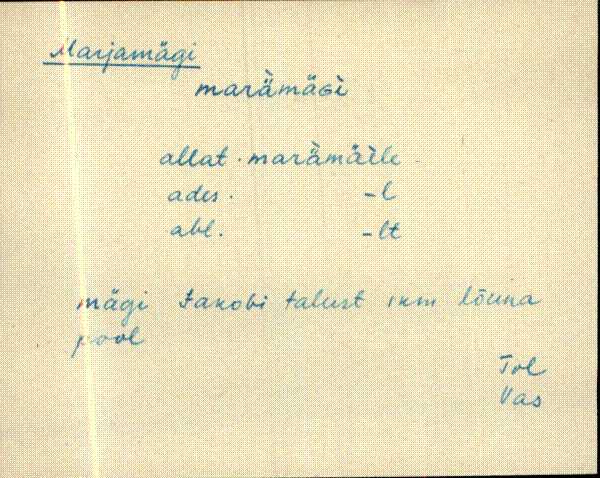 Marjamägi
maràmäGì
allat. maràmäèle
ades. -l
abl. -lt
mägi Jakobi talust 1 km lõuna
pool
Tol
Vas